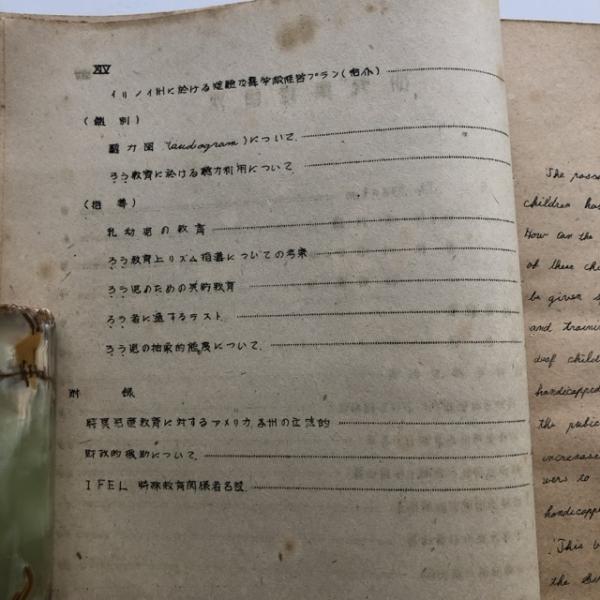 XIV
イリノイ州に於ける難聴及聾学級経営プラン(紹介)
(鑑別)
聴力図(audogram)について
ろう教育に於ける聴力利用について
(指導)
乳幼児の教育
ろう教育上リズム指導についての考察
ろう児のための美的教育
ろう者に適するテスト
ろう児の抽象的態度について
附 録
特異児童教育に対するアメリカ各州の立法的
財政的援助について
IFEL 特殊教育関係者名簿
The
children has
How can the
of these
be given
and
deaf
handicapped
the public
increase
were to
handicapped
This
the